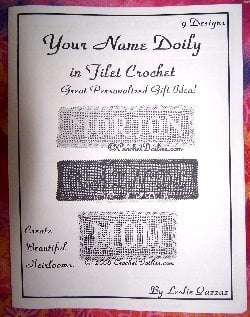 9 Designs
Your Name Doily
in Filet Crochet
Great Personalized Gift Idea!
©CrochetDoilies.com
MOM
© 2006 CrochetDoilies.com
Create
Beautiful
Heirlooms.
By Leslie